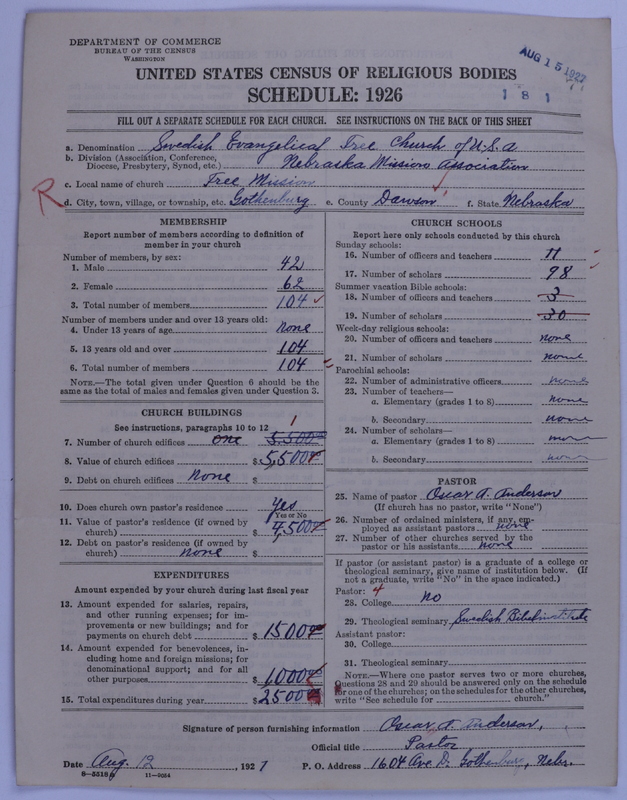 DEPARTMENT OF COMMERCE
BUREAU OF THE CENSUS
WASHINGTON
AUG 15 1927
1 8 1
UNITED STATES CENSUS OF RELIGIOUS BODIES
SCHEDULE: 1926
FILL OUT A SEPARATE SCHEDULE FOR EACH CHURCH. SEE INSTRUCTIONS ON THE BACK OF THIS SHEET
a. Denomination Swedish Evangelical Free Church of U.S.A
b. Division (Association, Conference, Diocese, Presbytery, Synod, etc.) Nebraska Mission Association
c. Local name of church Free Mission
R
d. City, town, village, or township, etc. Gothenburg e. County Dawson f. State Nebraska
MEMBERSHIP
Report number of members according to definition of
member in your church
Number of members, by sex:
1. Male 42
2. Female 62
3. Total number of members 104
Number of members under and over 13 years old:
4. Under 13 years of age none
5. 13 years old and over 104
6. Total number of members 104
NOTE.—The total given under Question 6 should be the
same as the total of males and females given under Question 3.
CHURCH BUILDINGS
See instructions, paragraphs 10 to 12
1
7. Number of church edifices one 5,500
8. Value of church edifices $ 5,500
9. Debt on church edifices none $
10. Does church own pastor's residence yes
Yes or No
11. Value of pastor's residence (if owned by
church) $ 4,500
12. Debt on pastor's residence (if owned by
church) none $
EXPENDITURES
Amount expended by your church during last fiscal year
13. Amount expended for salaries, repairs,
and other running expenses; for im-
provements or new buildings; and for
payments on church debt $ 1500
14. Amount expended for benevolences, in-
cluding home and foreign missions; for
denominational support; and for all
other purposes $ 1000
15. Total expenditures during year $ 2500
CHURCH SCHOOLS
Report here only schools conducted by this church
Sunday schools:
16. Number of officers and teachers 11
17. Number of scholars 98
Summer vacation Bible schools:
18. Number of officers and teachers 3
19. Number of scholars 30
Week-day religious schools:
20. Number of officers and teachers none
21. Number of scholars none
Parochial schools:
22. Number of administrative officers none
23. Number of teachers—
a. Elementary (grades 1 to 8) none
b. Secondary none
24. Number of scholars—
a. Elementary (grades 1 to 8) none
b. Secondary none
PASTOR
25. Name of pastor Oscar A. Anderson
(If church has no pastor, write "None")
26. Number of ordained ministers, if any, em-
ployed as assistant pastors none
27. Number of other churches served by the
pastor or his assistants none
If pastor (or assistant pastor) is a graduate of a college or
theological seminary, give name of institution below. (If
not a graduate, write "No" in the space indicated.)
Pastor: 4
28. College no
29. Theological seminary Swedish Bibelinstitute
Assistant pastor:
30. College
31. Theological seminary
NOTE.—Where one pastor serves two or more churches,
Questions 28 and 29 should be answered only on the schedule
for one of the churches; on the schedules for the other churches,
write "See schedule for church."
Signature of person furnishing information Oscar A. Anderson,
Official title Pastor
Date Aug. 12, 1927 P. O. Address 1604 Ave D. Gothenburg, Nebr.
11—9094